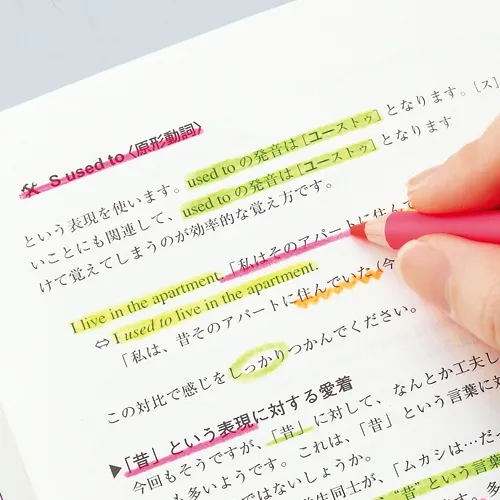 S used to〈原形動詞〉
という表現を使います。used to の発音は［ユーストゥ］となります。［ス］
いことにも関連して、used to の発音は［ユーストゥ］となります
けて覚えてしまうのが効率的な覚え方です。
I live in the apartment.「私はそのアパートに住んで
⇔ I used to live in the apartment.
「私は、昔そのアパートに住んでいた（今
この対比で感じをしっかりつかんでください。
▶「昔」という表現に対する愛着
今回もそうですが、「昔」に対して、なんとか工夫し
も多いようです。これは、「昔」という言葉に対
ではないでしょうか。
学生同士が、「ムカシは…だっ
"昔"という言葉